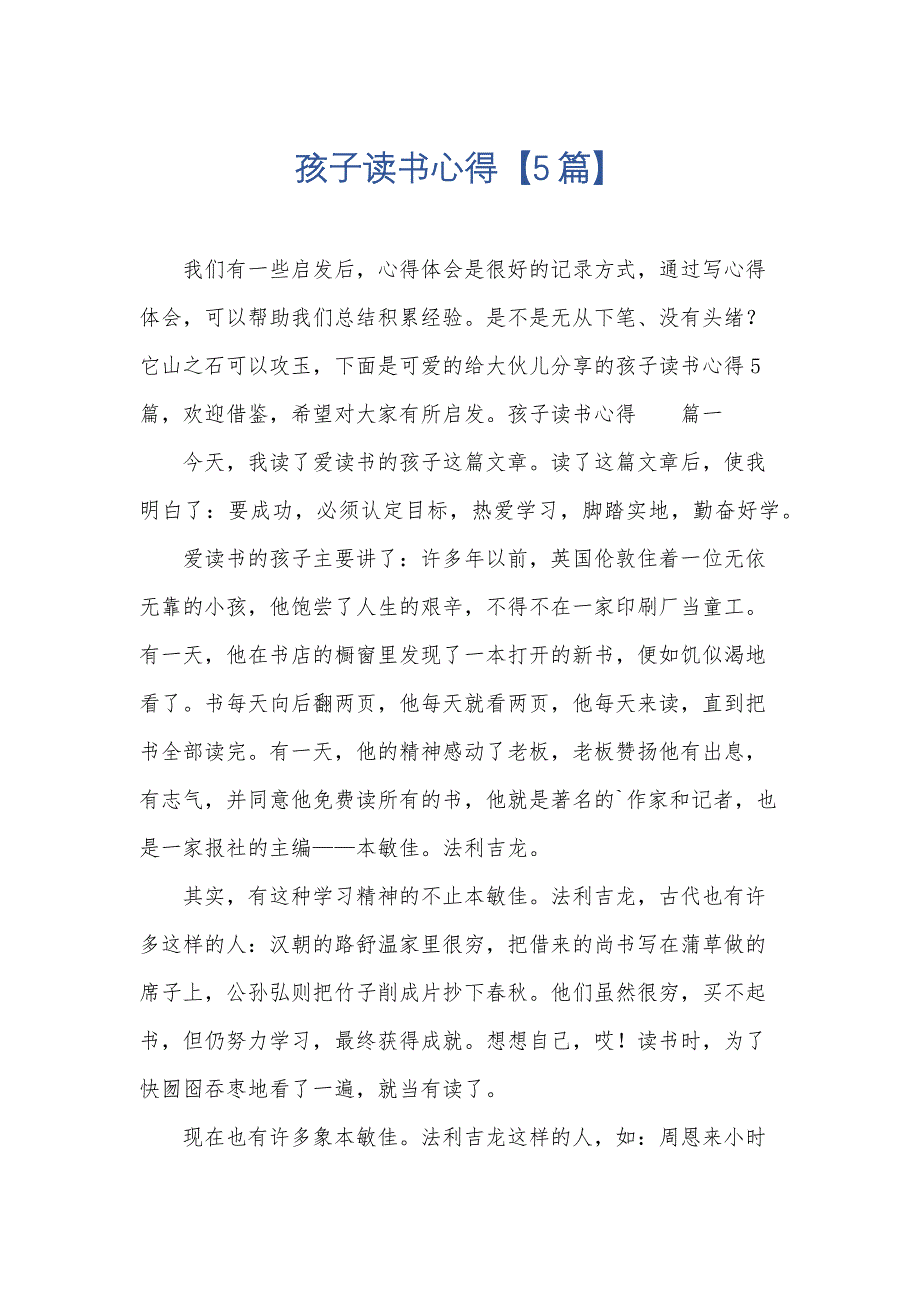 孩子读书心得【5篇】
我们有一些启发后，心得体会是很好的记录方式，通过写心得
体会，可以帮助我们总结积累经验。是不是无从下笔、没有头绪？
它山之石可以攻玉，下面是可爱的给大伙儿分享的孩子读书心得5
篇，欢迎借鉴，希望对大家有所启发。孩子读书心得　　篇一
今天，我读了爱读书的孩子这篇文章。读了这篇文章后，使我
明白了：要成功，必须认定目标，热爱学习，脚踏实地，勤奋好学。
爱读书的孩子主要讲了：许多年以前，英国伦敦住着一位无依
无靠的小孩，他饱尝了人生的艰辛，不得不在一家印刷厂当童工。
有一天，他在书店的橱窗里发现了一本打开的新书，便如饥似渴地
看了。书每天向后翻两页，他每天就看两页，他每天来读，直到把
书全部读完。有一天，他的精神感动了老板，老板赞扬他有出息，
有志气，并同意他免费读所有的书，他就是著名的`作家和记者，也
是一家报社的主编——本敏佳。法利吉龙。
其实，有这种学习精神的不止本敏佳。法利吉龙，古代也有许
多这样的人：汉朝的路舒温家里很穷，把借来的尚书写在蒲草做的
席子上，公孙弘则把竹子削成片抄下春秋。他们虽然很穷，买不起
书，但仍努力学习，最终获得成就。想想自己，哎！读书时，为了
快囫囵吞枣地看了一遍，就当有读了。
现在也有许多象本敏佳。法利吉龙这样的人，如：周恩来小时